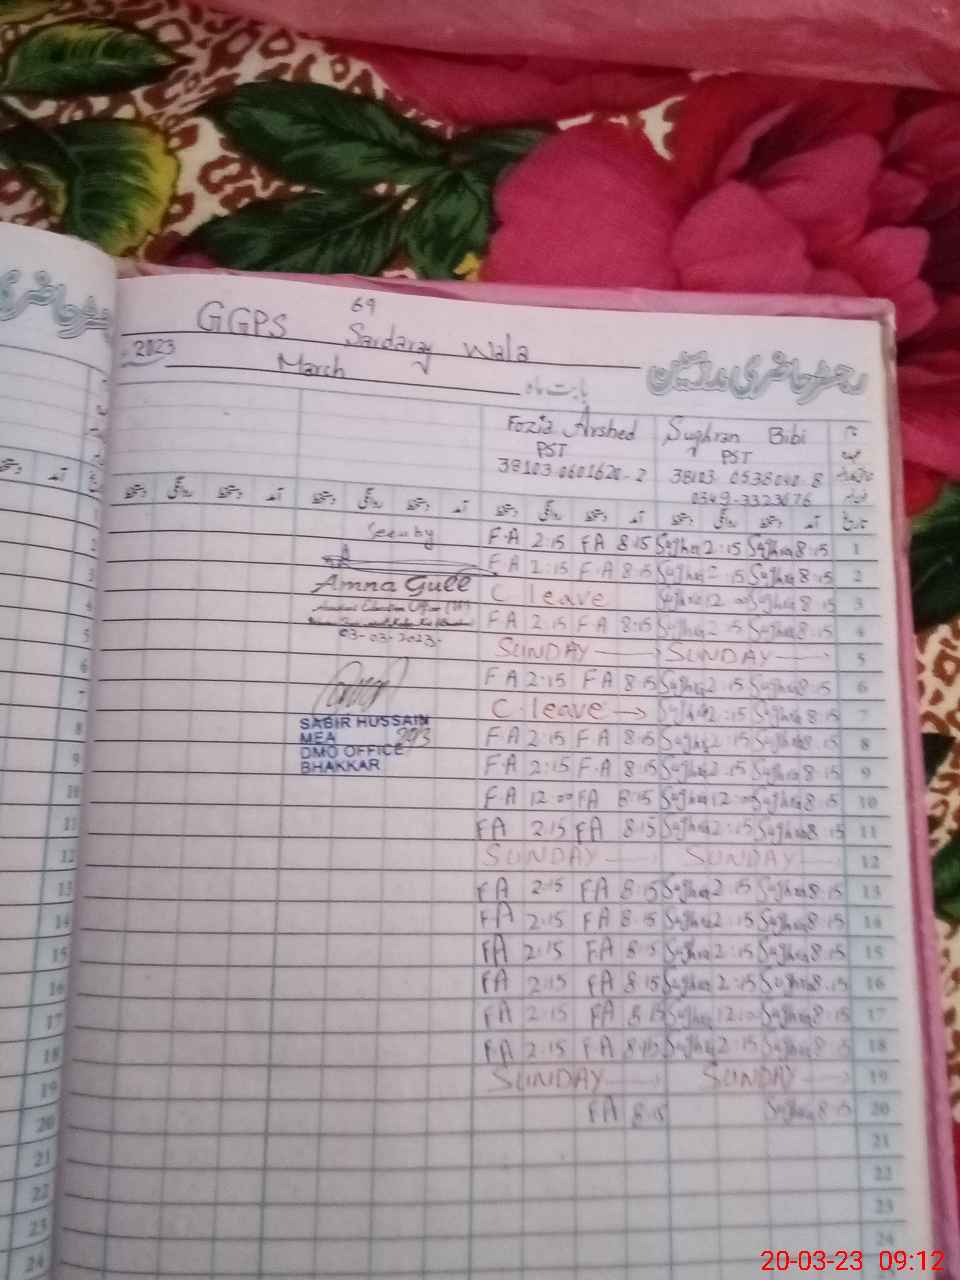 GGPS 69 Sardaray Wala
رجسٹر حاضری مدرسین
2023 March بابت ماہ
Fozia Arshed Sughran Bibi
PST PST
38103-0601620-2 38103-0538040-8
0349-3323676
Seen by F.A 2:15 FA 8:15 Sughra 2:15 Sughra 8:15 1
F A 2:15 F.A 8:15 Sughra 2:15 Sughra 8:15 2
Amna Gull C leave Sughra 12:00 Sughra 8:15 3
F A 2:15 F A 8:15 Sughra 2:15 Sughra 8:15 4
03-03-2023
SUNDAY SUNDAY 5
F A 2:15 F A 8:15 Sughra 2:15 Sughra 8:15 6
C.leave Sughra 2:15 Sughra 8:15 7
SABIR HUSSAIN
MEA
DMO OFFICE
BHAKKAR
F A 2:15 F A 8:15 Sughra 2:15 Sughra 8:15 8
F.A 2:15 F.A 8:15 Sughra 2:15 Sughra 8:15 9
F.A 12:00 FA 8:15 Sughra 12:00 Sughra 8:15 10
FA 2:15 FA 8:15 Sughra 2:15 Sughra 8:15 11
SUNDAY SUNDAY 12
FA 2:15 FA 8:15 Sughra 2:15 Sughra 8:15 13
FA 2:15 FA 8:15 Sughra 2:15 Sughra 8:15 14
FA 2:15 FA 8:15 Sughra 2:15 Sughra 8:15 15
FA 2:15 FA 8:15 Sughra 2:15 Sughra 8:15 16
FA 2:15 FA 8:15 Sughra 12:00 Sughra 8:15 17
FA 2:15 FA 8:15 Sughra 2:15 Sughra 8:15 18
SUNDAY SUNDAY 19
FA 8:15 Sughra 8:15 20
21
22
23
24
20-03-23 09:12